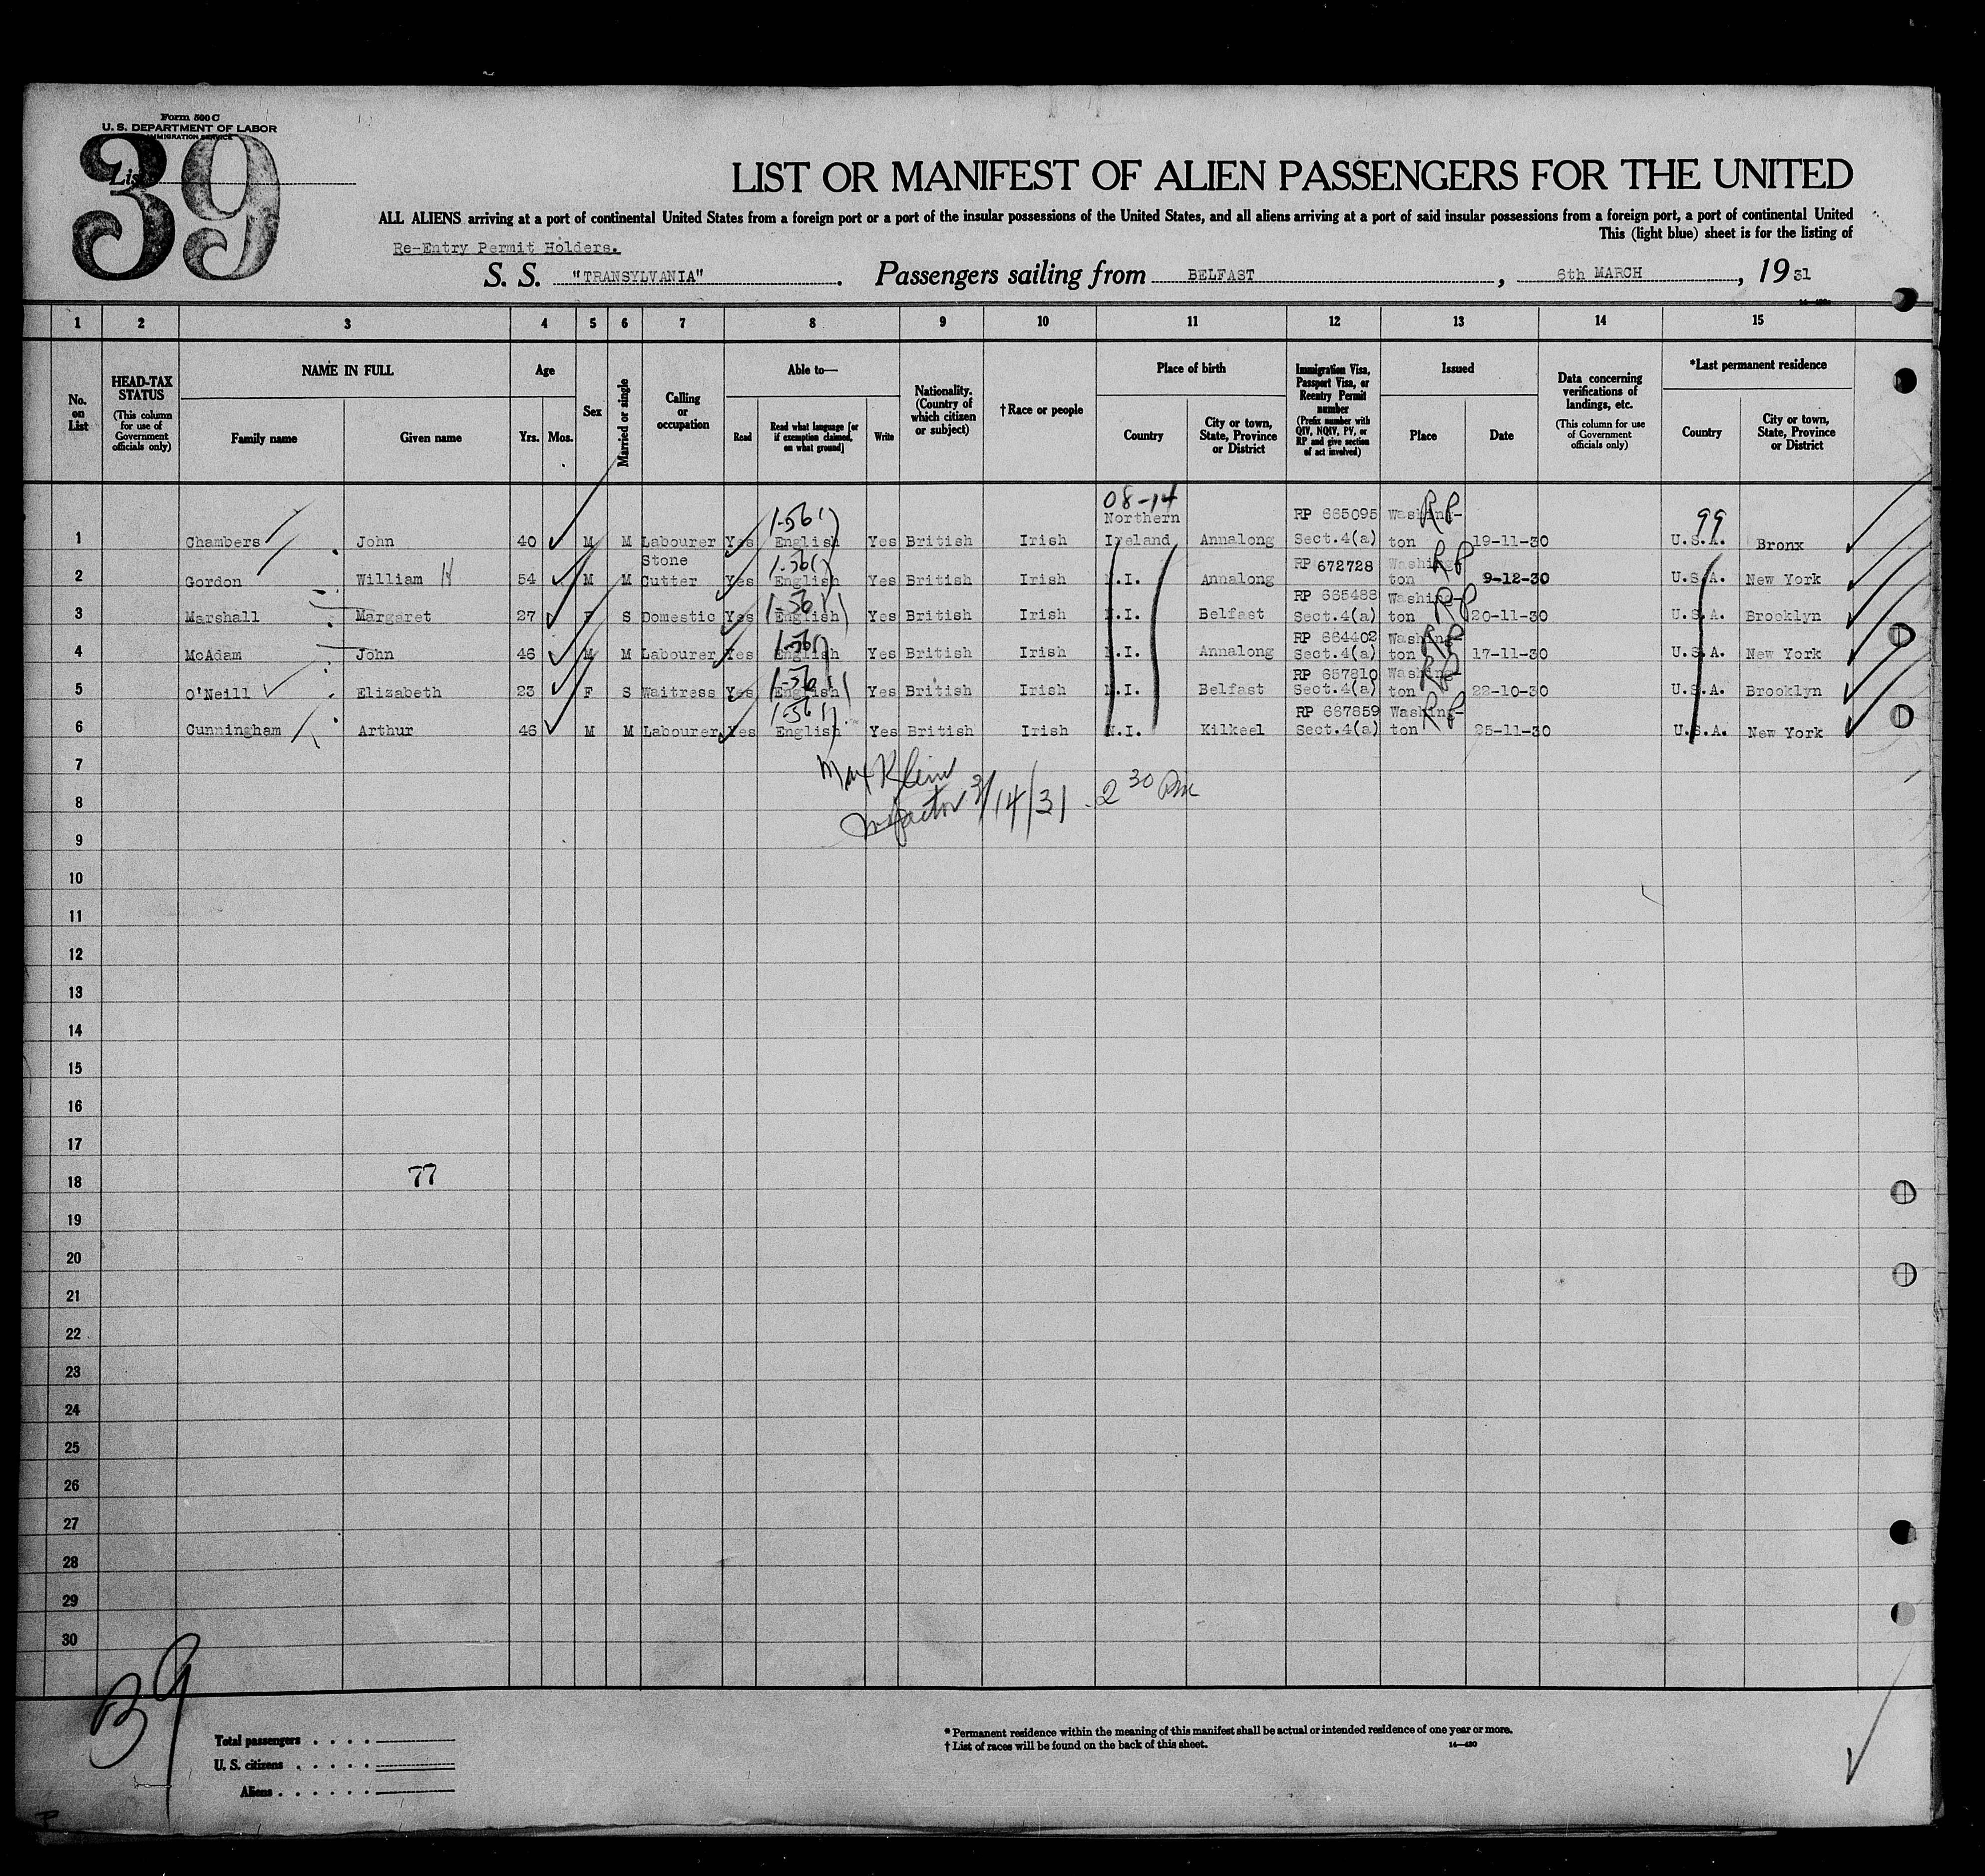 Form 500 C
U. S. DEPARTMENT OF LABOR
IMMIGRATION SERVICE
39
List
LIST OR MANIFEST OF ALIEN PASSENGERS FOR THE UNITED
ALL ALIENS arriving at a port of continental United States from a foreign port or a port of the insular possessions of the United States, and all aliens arriving at a port of said insular possessions from a foreign port, a port of continental United
This (light blue) sheet is for the listing of
Re-Entry Permit Holders.
S. S. "TRANSYLVANIA". Passengers sailing from BELFAST, 6th MARCH, 19 31
1 2 3 4 5 6 7 8 9 10 11 12 13 14 15
No. on List
HEAD-TAX STATUS (This column for use of Government officials only)
NAME IN FULL
Family name Given name
Age
Yrs. Mos.
Sex
Married or single
Calling or occupation
Able to—
Read Read what language [or if exemption claimed, on what ground] Write
Nationality. (Country of which citizen or subject)
†Race or people
Place of birth
Country City or town, State, Province or District
Immigration Visa, Passport Visa, or Reentry Permit number (Prefix number with QIV, NQIV, PV, or RP and give section of act involved)
Issued
Place Date
Data concerning verifications of landings, etc. (This column for use of Government officials only)
*Last permanent residence
Country City or town, State, Province or District
08-14 99
1-56 Northern RP 665095 Washing- RP
1 Chambers John 40 M M Labourer Yes English Yes British Irish Ireland Annalong Sect.4(a) ton 19-11-30 U.S.A. Bronx
Stone 1-56 RP 672728 Washing- RP
2 Gordon William H 54 M M Cutter Yes English Yes British Irish N.I. Annalong ton 9-12-30 U.S.A. New York
1-56 RP 665488 Washing- RP
3 Marshall Margaret 27 F S Domestic Yes English Yes British Irish N.I. Belfast Sect.4(a) ton 20-11-30 U.S.A. Brooklyn
1-56 RP 664402 Washing- RP
4 McAdam John 46 M M Labourer Yes English Yes British Irish N.I. Annalong Sect.4(a) ton 17-11-30 U.S.A. New York
1-56 RP 657810 Washing- RP
5 O'Neill Elizabeth 23 F S Waitress Yes English Yes British Irish N.I. Belfast Sect.4(a) ton 22-10-30 U.S.A. Brooklyn
1-56 RP 667859 Washing- RP
6 Cunningham Arthur 46 M M Labourer Yes English Yes British Irish N.I. Kilkeel Sect.4(a) ton 25-11-30 U.S.A. New York
7
Max Klein
8
3/14/31 2 30 Pm
9
10
11
12
13
14
15
16
17
18 77
19
20
21
22
23
24
25
26
27
28
29
30
39
Total passengers
U. S. citizens
Aliens
* Permanent residence within the meaning of this manifest shall be actual or intended residence of one year or more.
† List of races will be found on the back of this sheet. 14—430